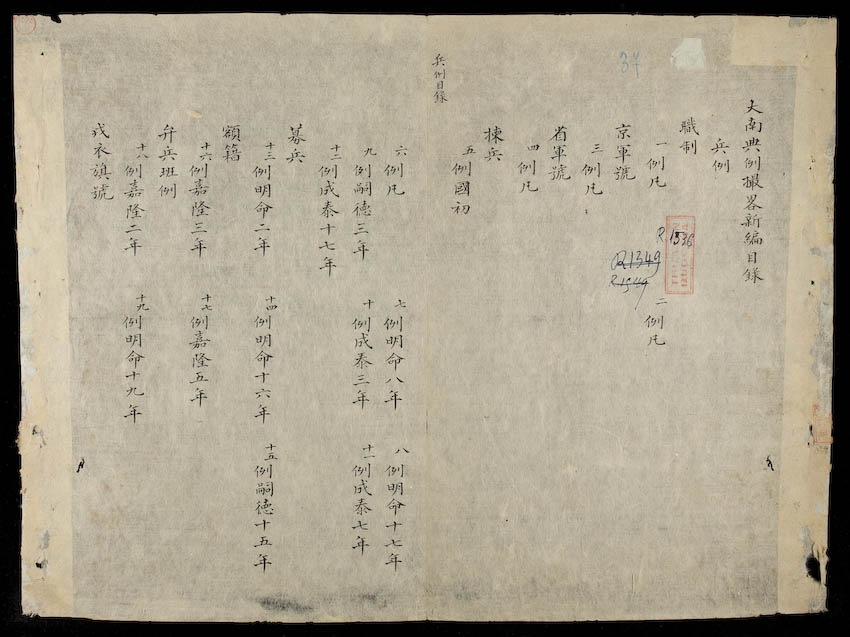 大南典例撮畧新編目錄
兵例
職制
一例凡
二例凡
京軍號
三例凡
省軍號
四例凡
揀兵
五例國初
兵例目錄
六例凡
七例明命八年
八例明命十七年
九例嗣德三年
十例成泰三年
十一例成泰七年
十二例成泰十七年
募兵
十三例明命二年
十四例明命十六年
十五例嗣德十五年
額籍
十六例嘉隆三年
十七例嘉隆五年
弁兵班例
十八例嘉隆二年
十九例明命十九年
戎衣旗號
37
R 1536
R1349
R1549